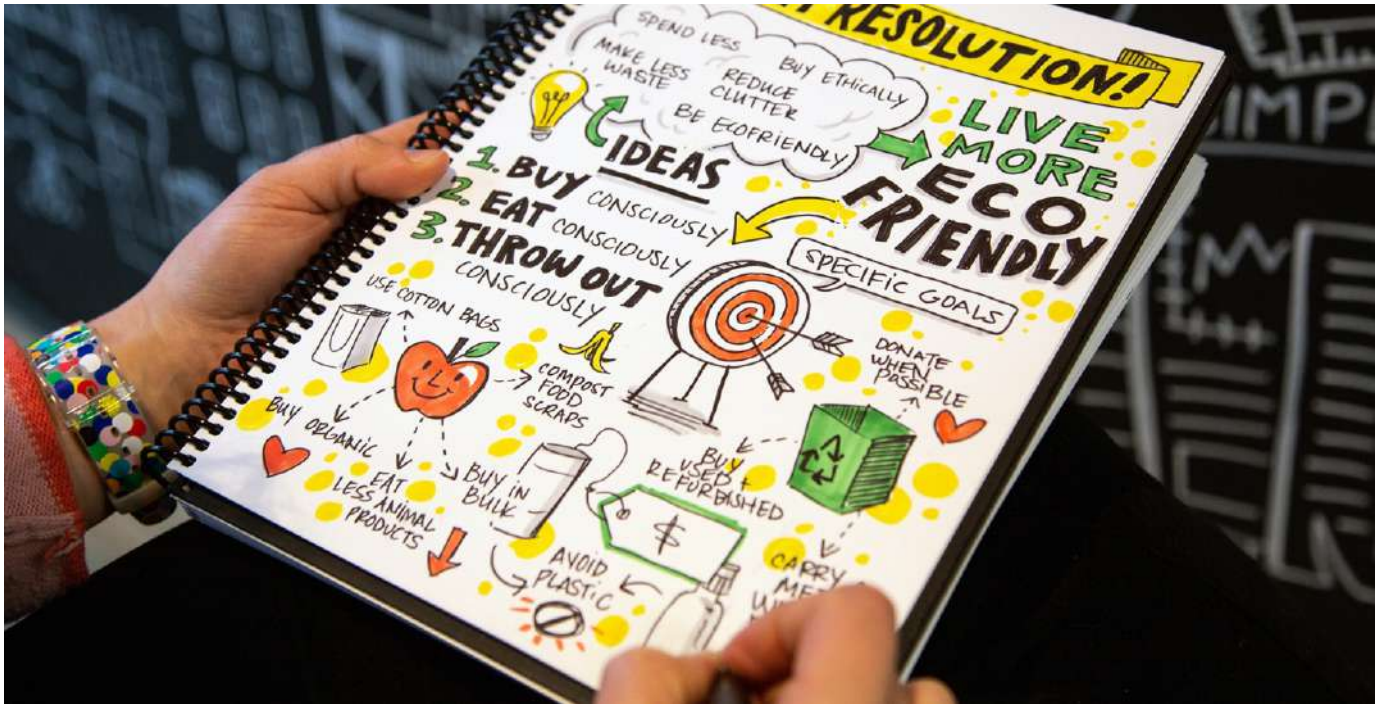 RESOLUTION!
SPEND LESS
MAKE LESS
WASTE
BUY ETHICALLY
REDUCE
CLUTTER
BE ECOFRIENDLY
LIVE
MORE
ECO
FRIENDLY
IDEAS
1. BUY CONSCIOUSLY
2. EAT CONSCIOUSLY
3. THROW OUT
CONSCIOUSLY
SPECIFIC GOALS
USE COTTON BAGS
COMPOST
FOOD
SCRAPS
BUY ORGANIC
EAT
LESS ANIMAL
PRODUCTS
BUY IN
BULK
AVOID
PLASTIC
$
DONATE
WHEN
POSSIBLE
BUY
USED +
REFURBISHED
CARRY